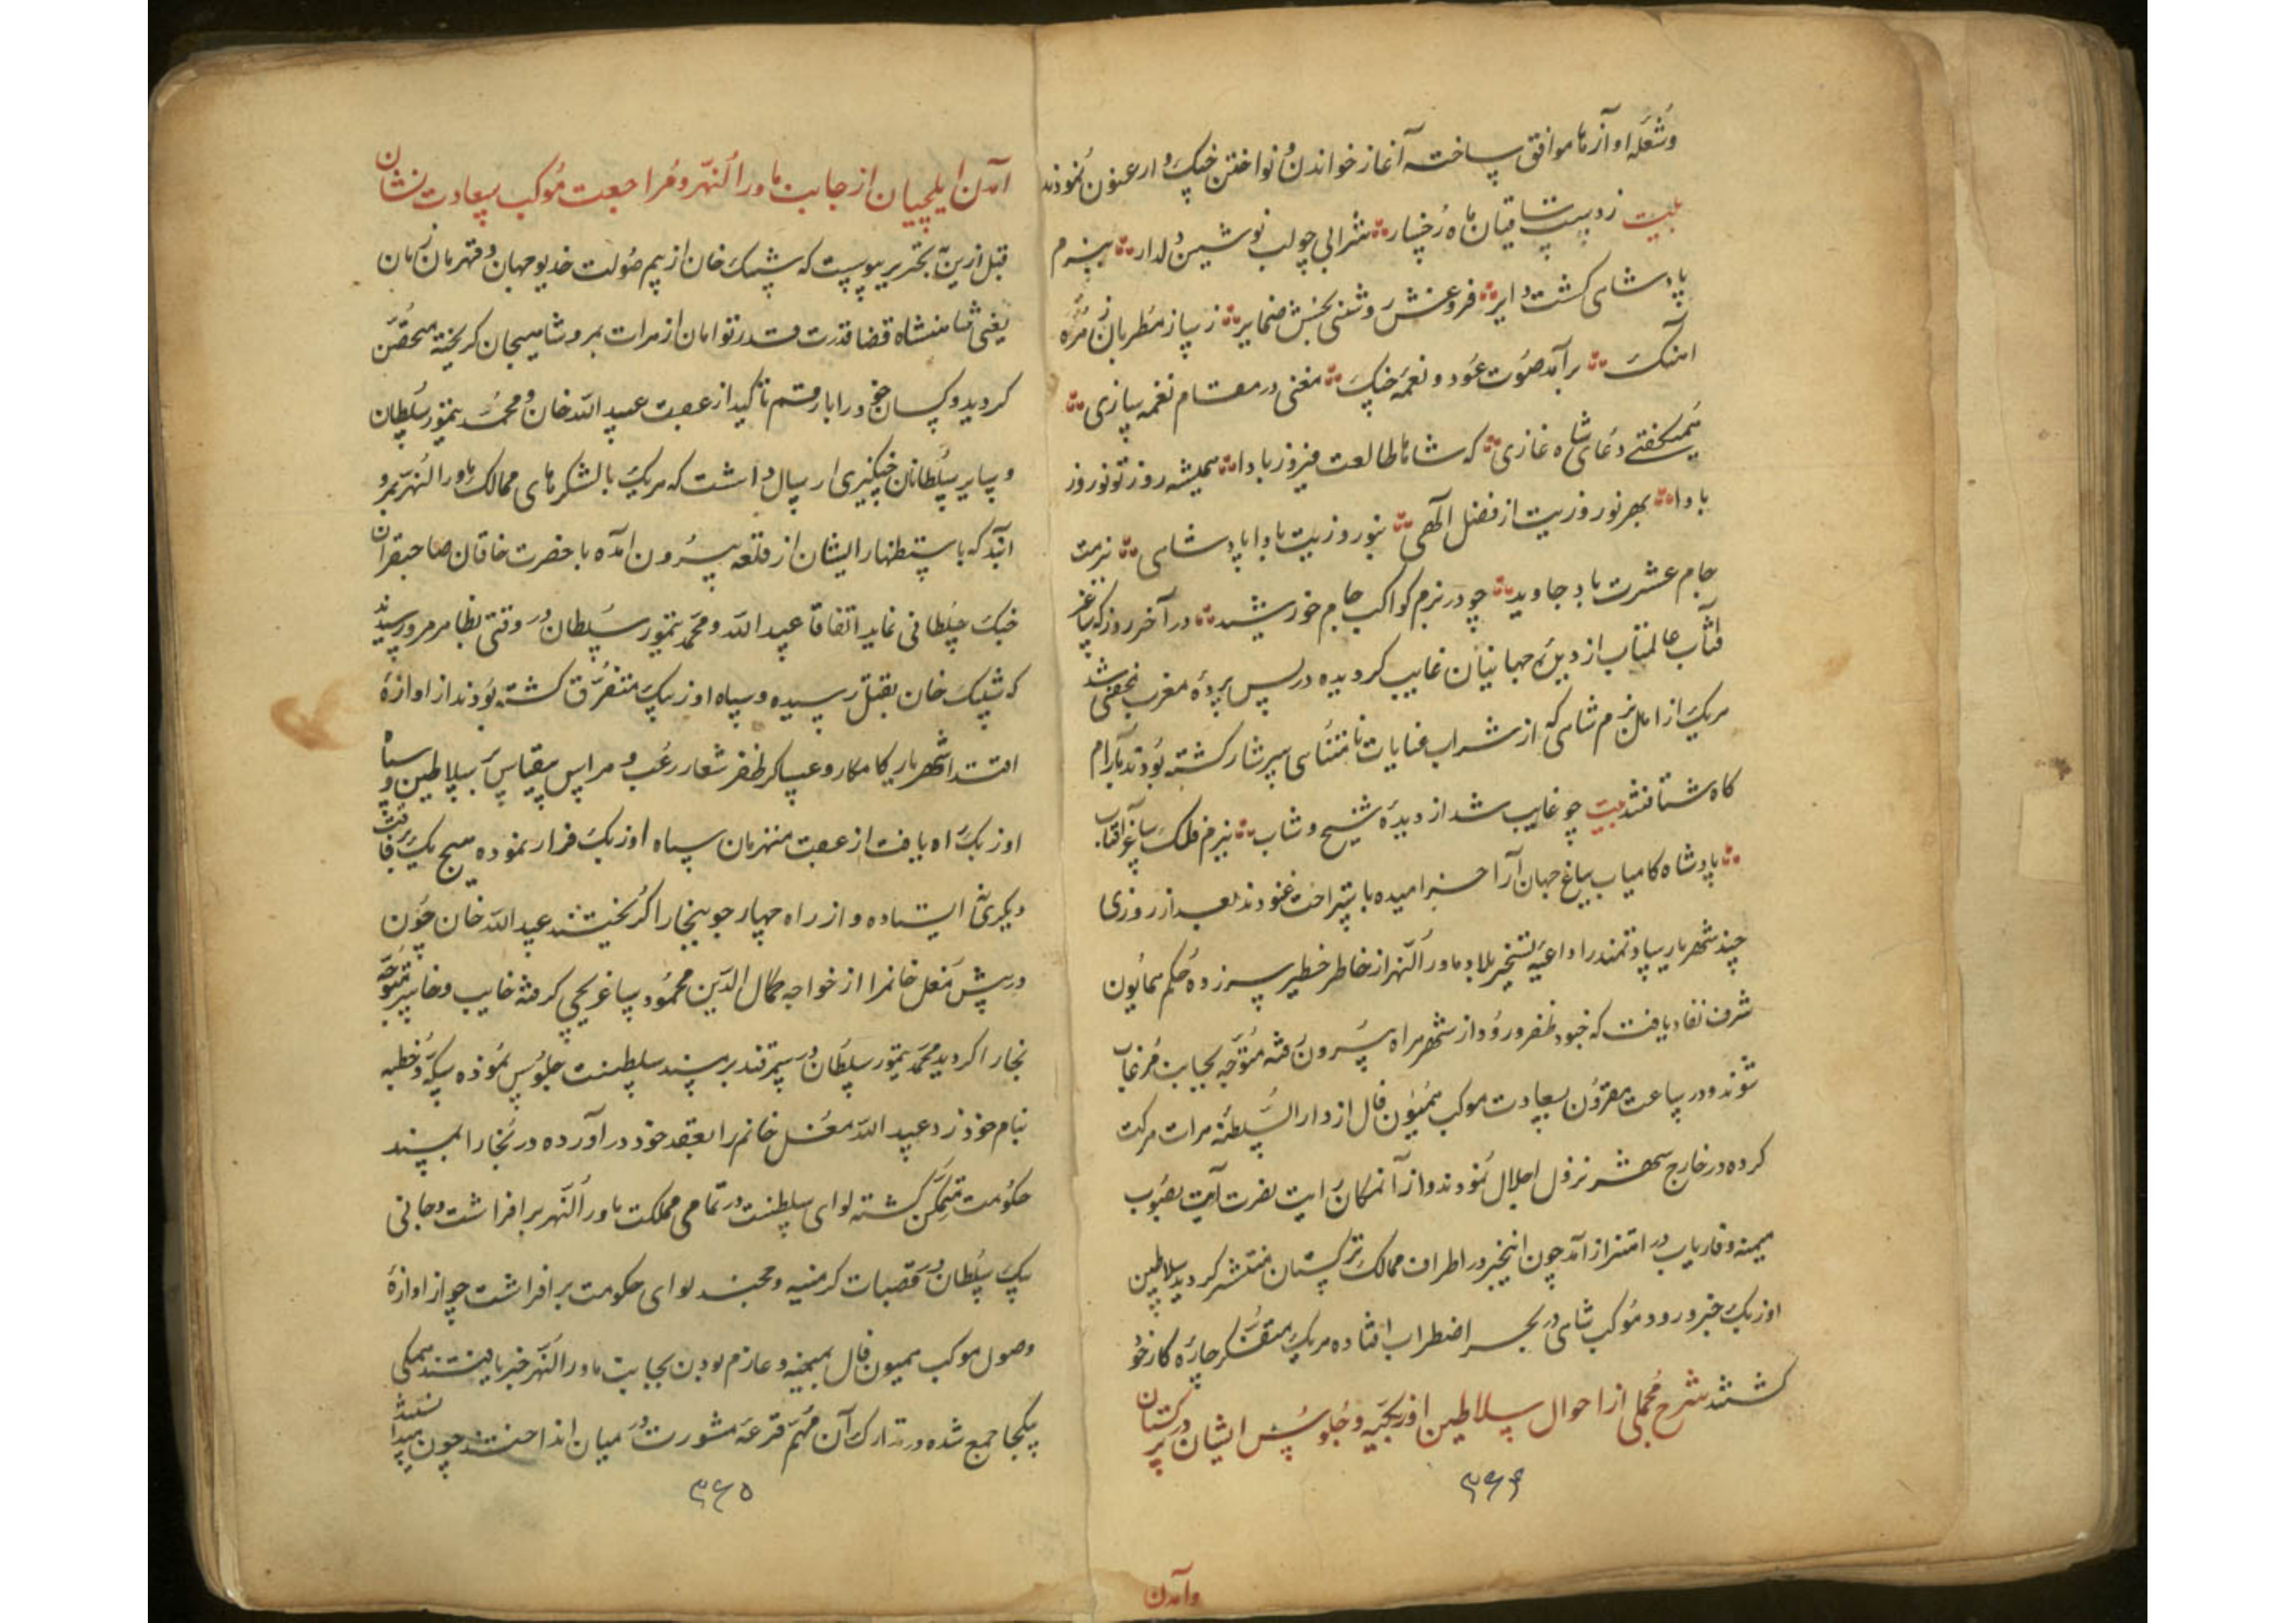 وشعله آوازها موافق ساخته آغاز خواندن و نواختن چنک و ارغنون نمودند
بیت ز دست ساقیان ماه رخسار شرابی چو لب نوشین دلدار ببزم
پادشاهی کشت دایر فروغش روشنی بخش ضمایر ز ساز مطربان زهره
اهنک برآمد صوت عود و نغمه چنک مغنی در مقام نغمه سازی
همیکفتی دعای شاه غازی که شاها طالعت فیروز بادا همیشه روز تو نوروز
بادا بهر نوروزیت از فضل الهی بنوروزیت بادا پادشاهی بزمت
جام عشرت باد جاوید چو در بزم کواکب جام خورشید در آخر روز که ساغر
آفتاب عالمتاب از دیده جهانیان غایب کردیده در پس پرده مغرب مخفی شد
هریک از اهل بزم شاهی که از شراب عنایات نامتناهی سرشار کشته بودند بآرام
کاه شتافتند بیت چو غایب شد از دیده شیخ و شاب ببزم فلک ساغر آفتاب
پادشاه کامیاب بباغ جهان آرا خرامیده باستراحت غنودند بعد از روزی
چند شهریار سعادتمند را داعیه تسخیر بلاد ماوراء النهر از خاطر خطیر سر زده حکم همایون
شرف نفاد یافت که جنود ظفر ورود از شهر هراه بیرون رفته متوجه بجانب مرغاب
شوند و در ساعت مقرون بسعادت موکب همیون فال از دار السلطنه هرات حرکت
کرده در خارج شهر نزول اجلال نمودند و از آنمکان رایت نصرت آیت بصوب
میمنه و فاریاب در اهتزاز آمد چون اینخبر در اطراف ممالک ترکستان منتشر کردید سلاطین
اوزبک خبر ورود موکب شاهی در بحر اضطراب افتاده هریک متفکر چاره کار خود
کشتند شرح مجملی از احوال سلاطین اوزبکیه و جلوس ایشان در ترکستان بر
۳۶۴
وآمدن
آمدن ایلچیان از جانب ماوراء النهر و مراجعت موکب سعادت نشان
قبل ازین بتحریر پیوست که شیبک خان از بیم صولت خدیو جهان و قهرمان زمان
یعنی شاهنشاه قضا قدرت قدر توامان از هرات بمرو شاهیجان کریخته متحصن
کردید و کسان خود را با رقم تاکید از عقب عبید الله خان و محمد تیمور سلطان
و سایر سلطانان چنکیزی ارسال داشت که هریک با لشکرهای ممالک ماوراء النهر بمرو
آیند که باستظهار ایشان از قلعه بیرون آمده با حضرت خاقان صاحبقران
جنک سلطانی نماید اتفاقا عبید الله و محمد تیمور سلطان در وقتی بظاهر مرو رسیدند
که شیبک خان بقتل رسیده و سپاه اوزبک متفرق کشته بودند از اوازه
اقتدار شهریار کامکار و عساکر ظفر شعار رعب و هراس بیقیاس بسلاطین و سپاه
اوزبک راه یافت از عقب منهزمان سپاه اوزبک فرار نموده هیچ یک برفاقت
دیکری نایستاده و از راه چهار جو ببخارا کریختند عبید الله خان چون
در پیش مغل خانم را از خواجه کمال الدین محمود ساغرچی کرفته خایب و خاسر متوجه
بخارا کردید محمد تیمور سلطان در سمرقند بر مسند سلطنت جلوس نموده سکه و خطبه
بنام خود زد و عبید الله مغل خانم را بعقد خود در آورده در بخارا بمسند
حکومت متمکن کشته لوای سلطنت در تمامی مملکت ماوراء النهر بر افراشت و جانی
بیک سلطان در قصبات کرمنیه و خجند لوای حکومت بر افراشت چو از اوازه
وصول موکب همیون فال بمیمنه و عازم بودن بجانب ماوراء النهر خبر یافتند همکی
یکجا جمع شده در تدارک آن مهم قرعه مشورت در میان انداختند چون میدانستند
۳۶۵